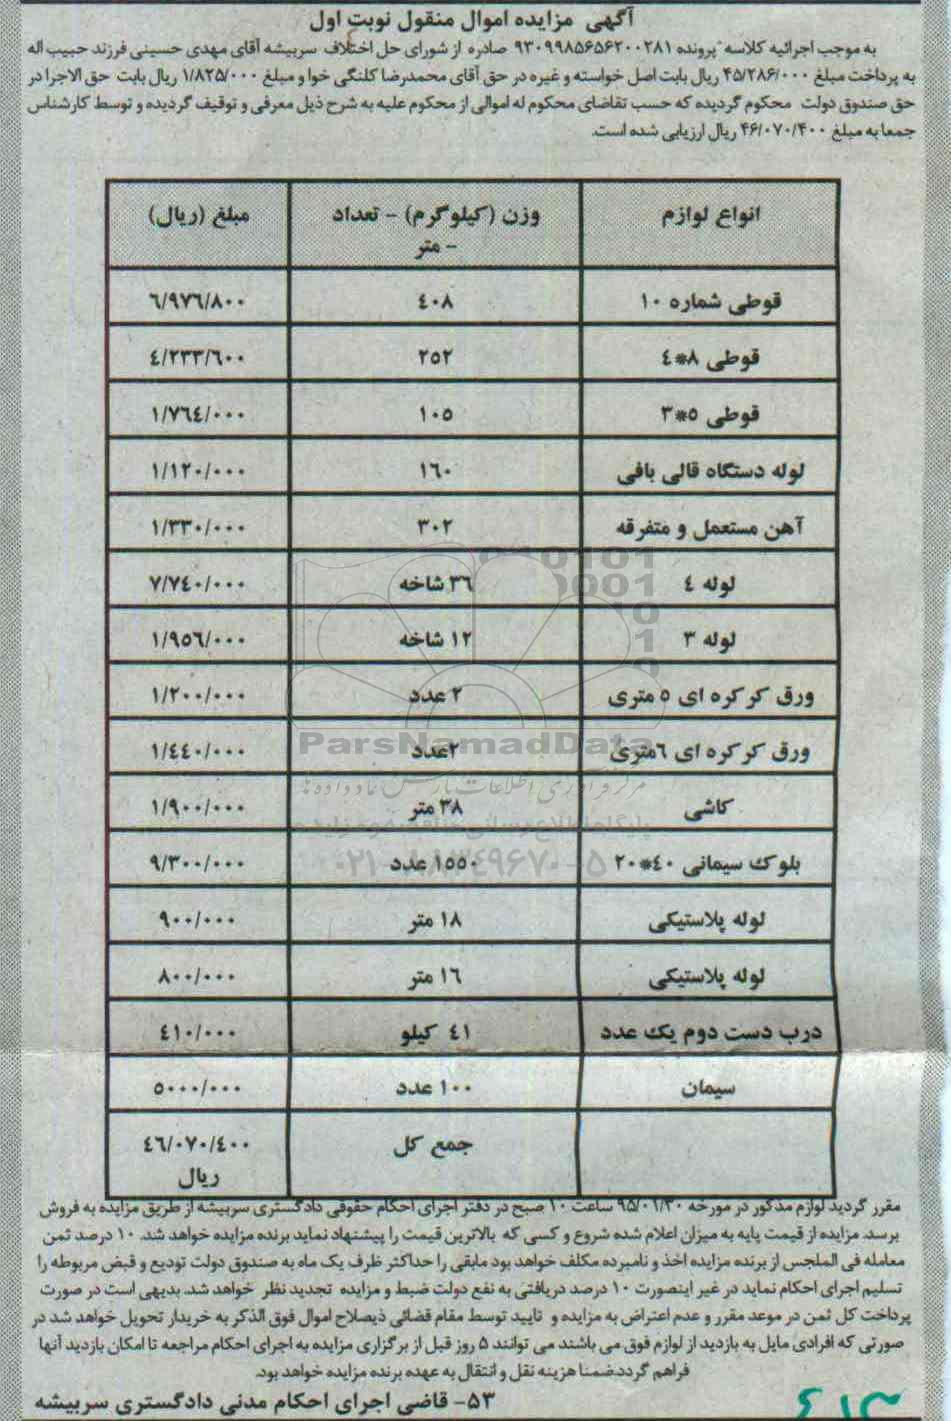 آگهی مزایده اموال منقول نوبت اول
به موجب اجرائیه کلاسه پرونده ۹۳۰۹۹۸۵۶۵۶۲۰۰۲۸۱ صادره از شورای حل اختلاف سربیشه آقای مهدی حسینی فرزند حبیب اله
به پرداخت مبلغ ۴۵/۲۸۶/۰۰۰ ریال بابت اصل خواسته و غیره در حق آقای محمدرضا کلنگی خوا و مبلغ ۱/۸۲۵/۰۰۰ ریال بابت حق الاجرا در
حق صندوق دولت محکوم گردیده که حسب تقاضای محکوم له اموالی از محکوم علیه به شرح ذیل معرفی و توقیف گردیده و توسط کارشناس
جمعا به مبلغ ۴۶/۰۷۰/۴۰۰ ریال ارزیابی شده است.
انواع لوازم وزن (کیلوگرم) - تعداد مبلغ (ریال)
- متر
قوطی شماره ۱۰ ٤۰۸ ٦/۹۷٦/۸۰۰
قوطی ۸*٤ ۲۵۲ ٤/۲۳۳/٦۰۰
قوطی ۵*۳ ۱۰۵ ۱/۷٦٤/۰۰۰
لوله دستگاه قالی بافی ۱٦۰ ۱/۱۲۰/۰۰۰
آهن مستعمل و متفرقه ۳۰۲ ۱/۳۳۰/۰۰۰
لوله ٤ ۳٦ شاخه ۷/۷٤۰/۰۰۰
لوله ۳ ۱۲ شاخه ۱/۹۵٦/۰۰۰
ورق کرکره ای ۵ متری ۲ عدد ۱/۲۰۰/۰۰۰
ورق کرکره ای ٦متری ۲عدد ۱/٤٤۰/۰۰۰
کاشی ۳۸ متر ۱/۹۰۰/۰۰۰
بلوک سیمانی ٤۰*۲۰ ۱۵۵۰ عدد ۹/۳۰۰/۰۰۰
لوله پلاستیکی ۱۸ متر ۹۰۰/۰۰۰
لوله پلاستیکی ۱٦ متر ۸۰۰/۰۰۰
درب دست دوم یک عدد ٤۱ کیلو ٤۱۰/۰۰۰
سیمان ۱۰۰ عدد ۵۰۰۰/۰۰۰
جمع کل ٤٦/۰۷۰/٤۰۰
ریال
ParsNamadData
مرکز فرآوری اطلاعات پارس نماد داده ها
۰۲۱-۸۸۳۴۹۶۷۰-۵
مقرر گردید لوازم مذکور در مورخه ۹۵/۰۱/۳۰ ساعت ۱۰ صبح در دفتر اجرای احکام حقوقی دادگستری سربیشه از طریق مزایده به فروش
برسد. مزایده از قیمت پایه به میزان اعلام شده شروع و کسی که بالاترین قیمت را پیشنهاد نماید برنده مزایده خواهد شد. ۱۰ درصد ثمن
معامله فی الملجس از برنده مزایده اخذ و نامبرده مکلف خواهد بود مابقی را حداکثر ظرف یک ماه به صندوق دولت تودیع و قبض مربوطه را
تسلیم اجرای احکام نماید در غیر اینصورت ۱۰ درصد دریافتی به نفع دولت ضبط و مزایده تجدید نظر خواهد شد. بدیهی است در صورت
پرداخت کل ثمن در موعد مقرر و عدم اعتراض به مزایده و تایید توسط مقام قضائی ذیصلاح اموال فوق الذکر به خریدار تحویل خواهد شد در
صورتی که افرادی مایل به بازدید از لوازم فوق می باشند می توانند ۵ روز قبل از برگزاری مزایده به اجرای احکام مراجعه تا امکان بازدید آنها
فراهم گردد.ضمنا هزینه نقل و انتقال به عهده برنده مزایده خواهد بود.
۵۳- قاضی اجرای احکام مدنی دادگستری سربیشه